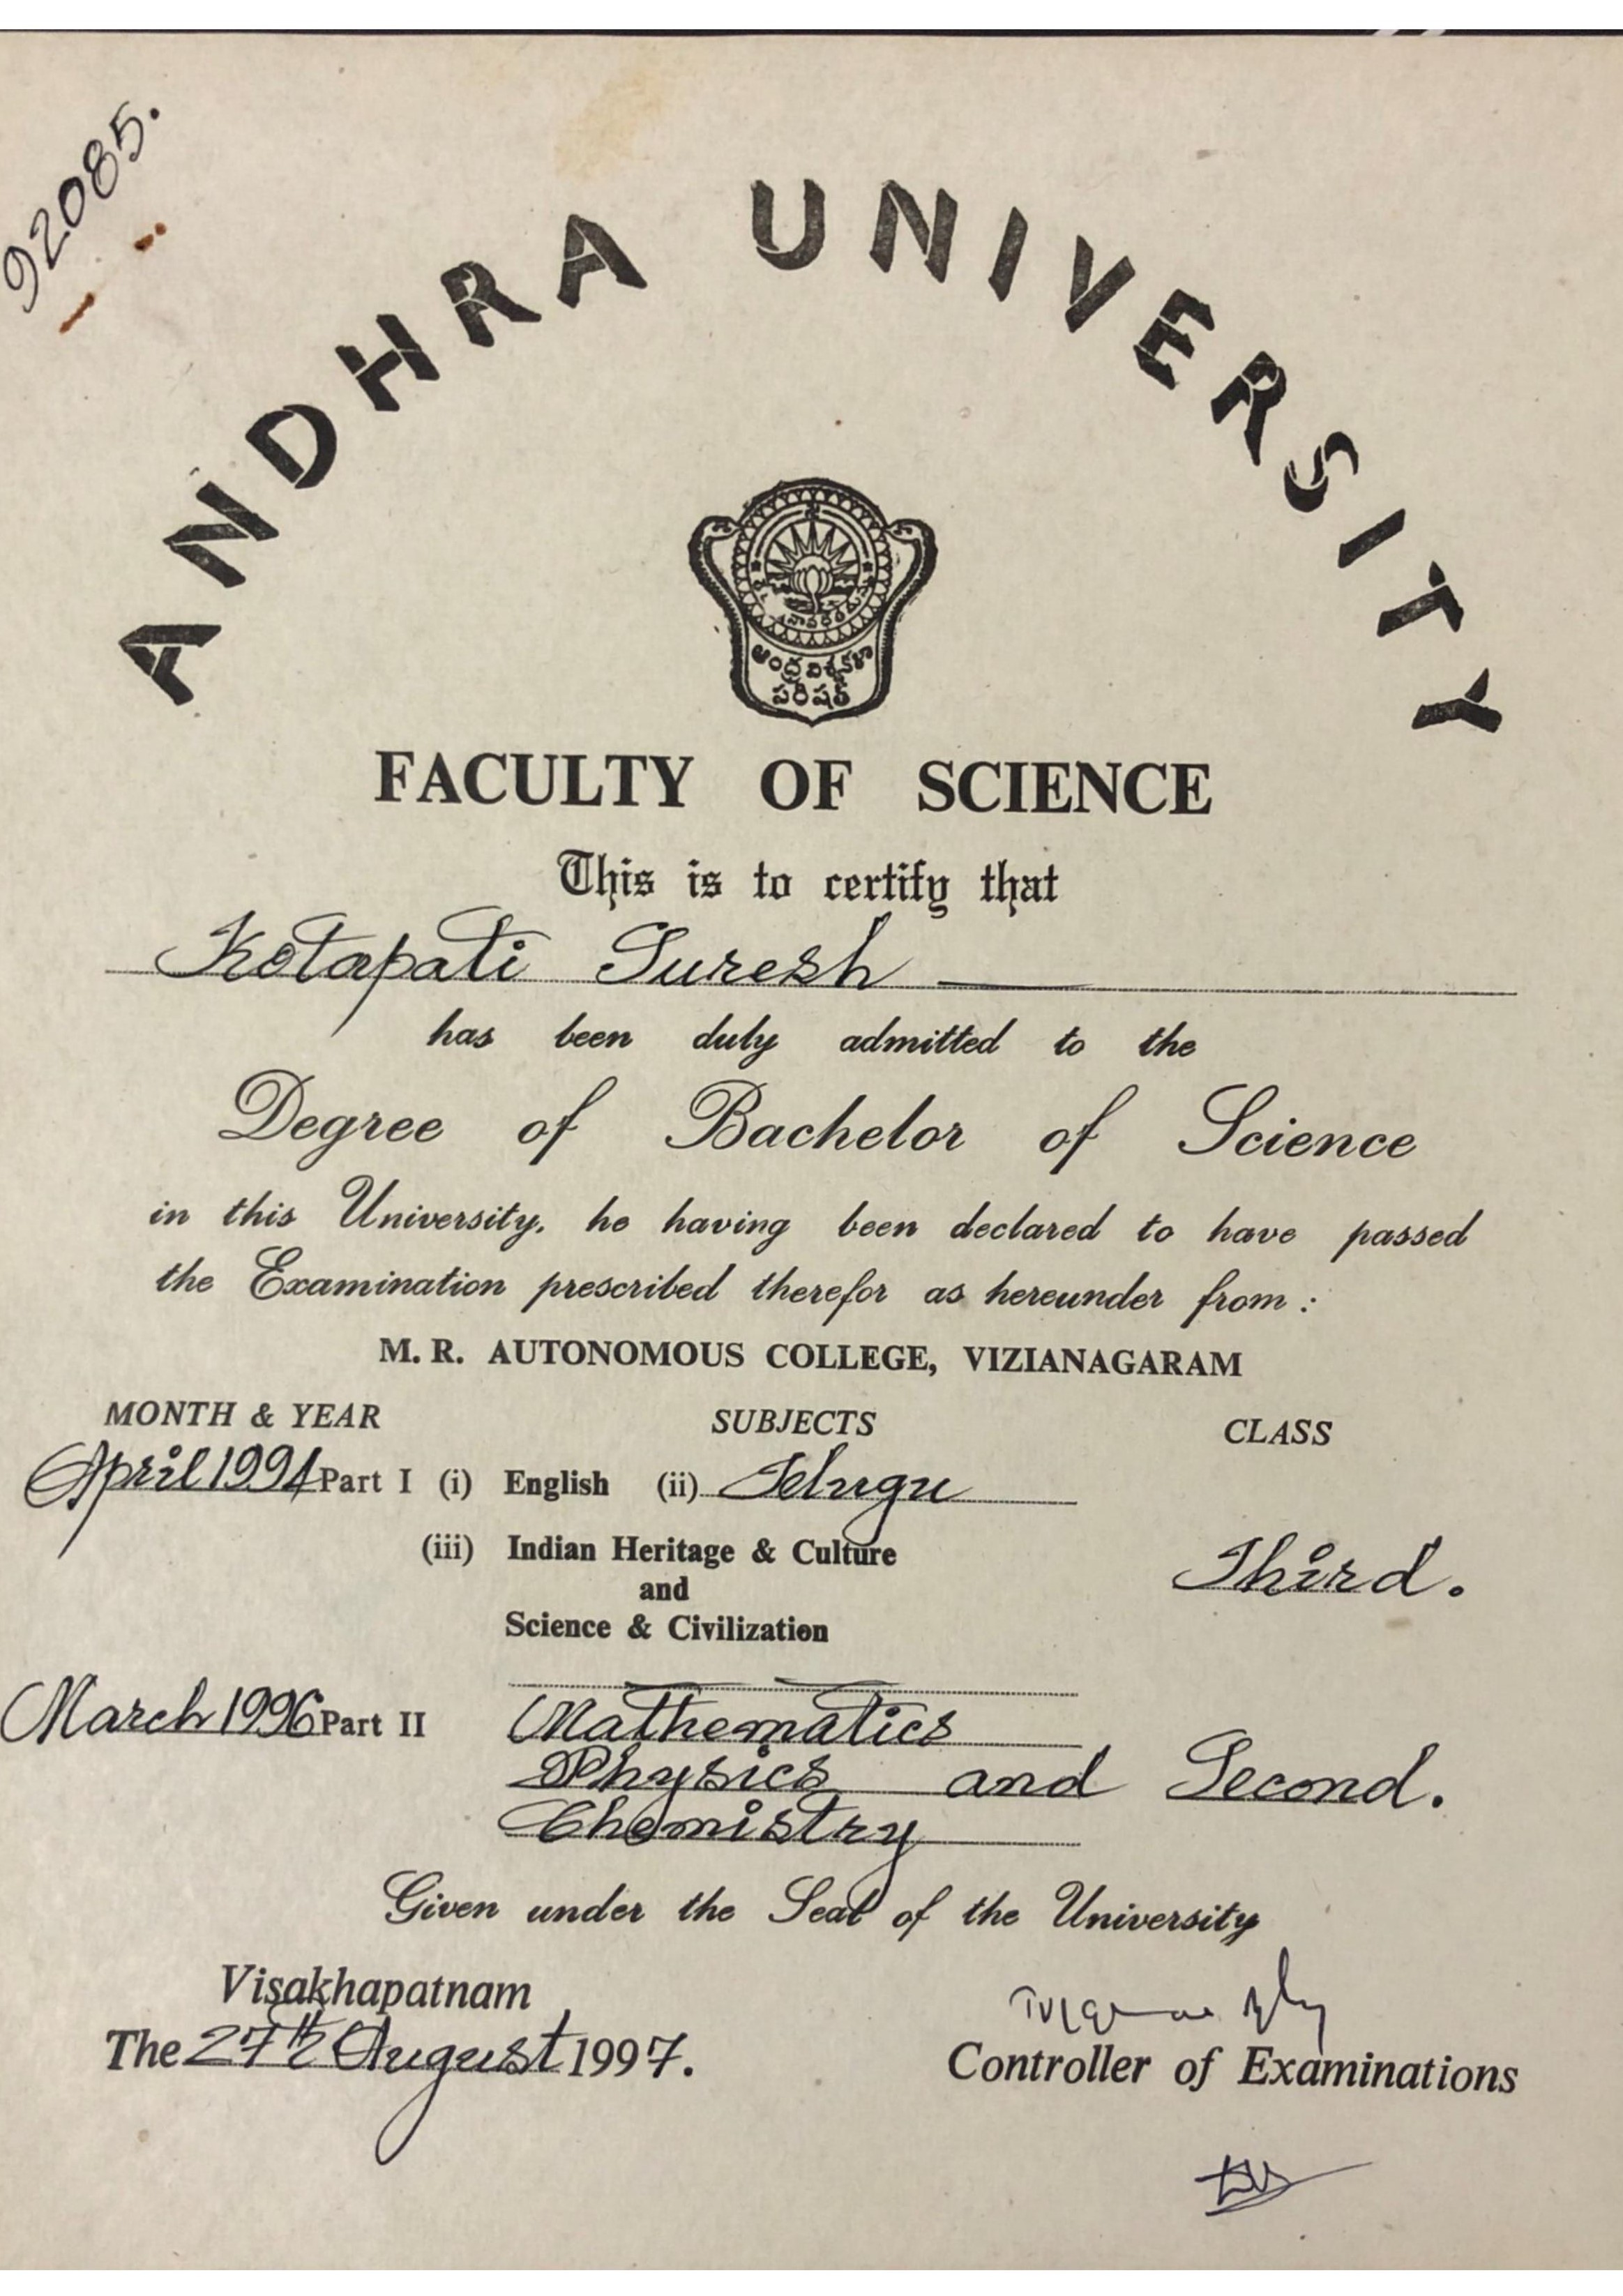 92085.
ANDHRA UNIVERSITY
ఆంధ్ర విశ్వకళా
పరిషత్
FACULTY OF SCIENCE
This is to certify that
Kotapati Suresh
has been duly admitted to the
Degree of Bachelor of Science
in this University, he having been declared to have passed
the Examination prescribed therefor as hereunder from :
M. R. AUTONOMOUS COLLEGE, VIZIANAGARAM
MONTH & YEAR SUBJECTS CLASS
April 1994 Part I (i) English (ii) Telugu
(iii) Indian Heritage & Culture
and
Third.
Science & Civilization
March 1996 Part II Mathematics
Physics and Second.
Chemistry
Given under the Seal of the University
Visakhapatnam
The 27th August 1997.
Controller of Examinations